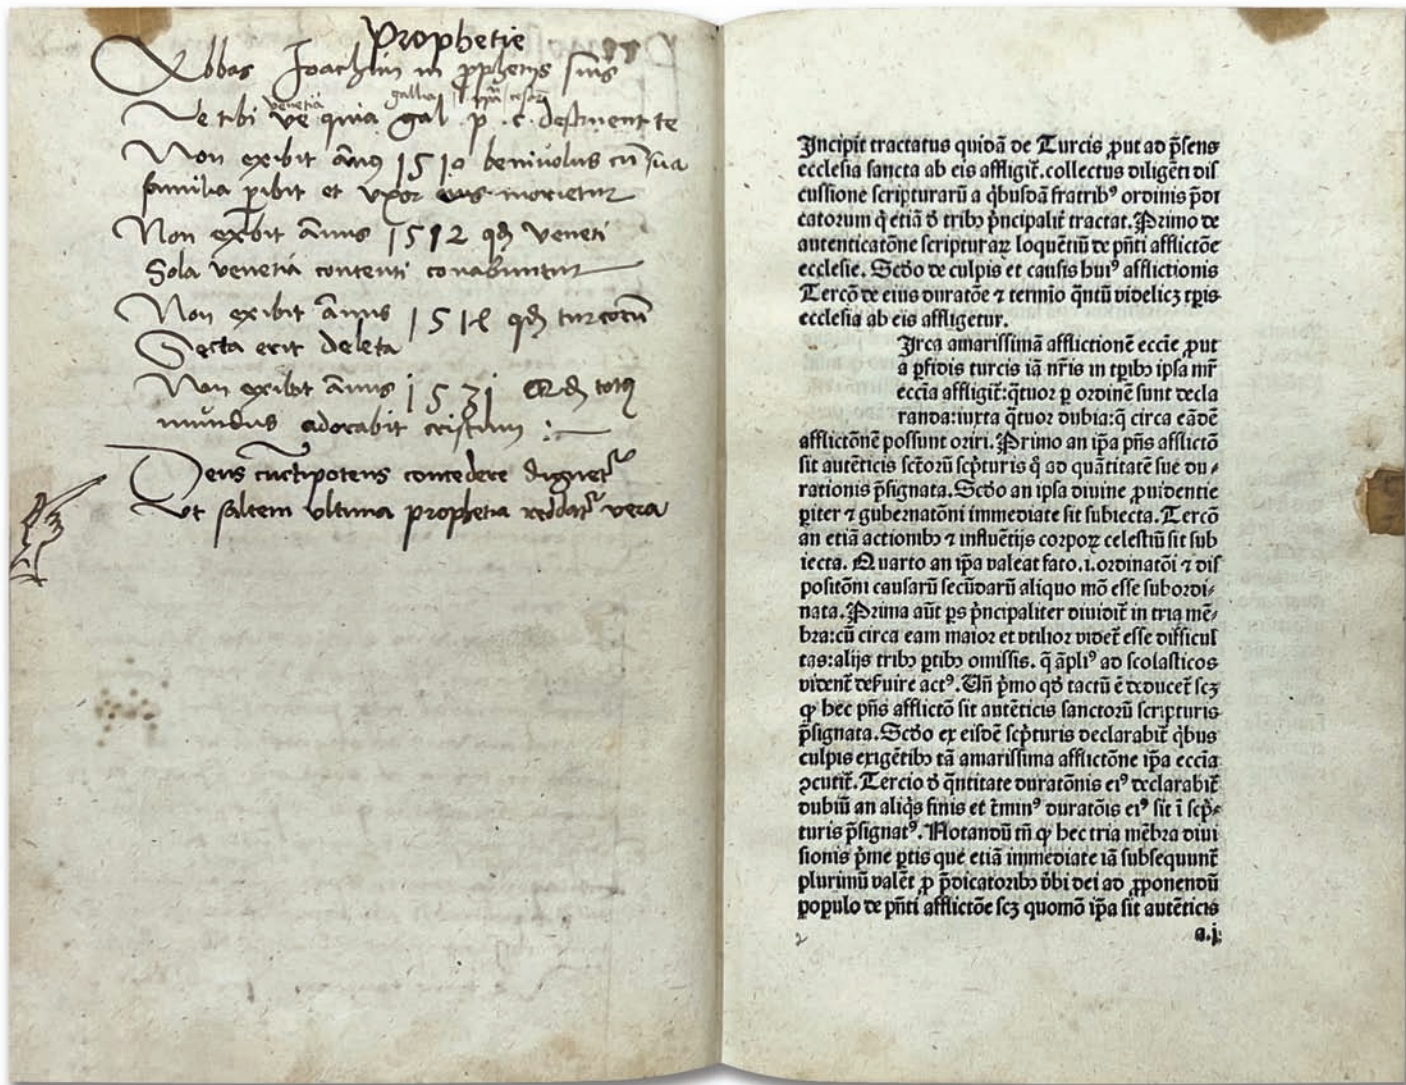 Prophetie
Abbas Joachim in ꝓphetijs suis
venetia gallia papa cesar
Ve tibi ve quia gal p .c. destruent te
Non exibit ānus 1510 beniuolus cū sua
familia ꝑibit et vxor eius morietur
Non exibit Annus 1512 qn̄ Veneti
Sola venetia contenti conabuntur
Non exibit ānus 151 qn̄ turcorū
Secta erit deleta
Non exibit ānus 1531 Qn̄ totꝰ
mundus adorabit cristum :
Deus cūctipotens concedere dignet᷑
Ut saltem vltima prophetia reddat᷑ vera
Incipit tractatus quidā de Turcis ꝓut ad p̄sens
ecclesia sancta ab eis affligit᷑.collectus diligēti dis
cussione scripturarū a q̇busdā fratribꝰ ordinis p̄di
catorum q̇ etiā ꝺ tribꝫ ṗncipalit᷑ tractat.Primo de
autenticatōne scripturaꝝ loquētiū de pn̄ti afflictōe
ecclesie. Scdō de culpis et causis huiꝰ afflictionis
Tercō de eius duratōe ⁊ termīo q̄ntū videlicꝫ tp̄is
ecclesia ab eis affligetur.
Irca amarissimā afflictionē eccīe ꝓut
a ꝑfidis turcis iā nr̄is in tp̄ibꝫ ipsa mr̄
eccīa affligit᷑:q̄tuor ꝑ ordinē sunt decla
randa:iuxta q̄tuor dubia:q̄ circa eādē
afflictōnē possunt oriri.Primo an ip̄a pn̄s afflictō
sit autēticis sct̄orū scp̄turis q̇ ad quātitatē sue du⸗
rationis p̄signata.Scdō an ipsa diuine ꝓuidentie
ꝑiter ⁊ gubernatōni immediate sit subiecta.Tercō
an etiā actionibꝫ ⁊ influētijs corpoꝝ celestiū sit sub
iecta. Quarto an ip̄a valeat fato.i.ordinatōi ⁊ dis
positōni causarū secūdarū aliquo mō esse subordi⸗
nata.Prima aūt ꝑs ṗncipaliter diuidit᷑ in tria mē⸗
bra:cū circa eam maior et vtilior videt᷑ esse difficul
tas:alijs tribꝫ ꝑtibꝫ omissis. q̄ āpliꝰ ad scolasticos
vident᷑ deẜuire actꝰ.Vn̄ ṗmo qd̄ tactū ē deducet᷑ scꝫ
ꝙ hec pn̄s afflictō sit autēticis sanctorū scripturis
p̄signata.Scdō ex eisdē scp̄turis declarabit᷑ q̇bus
culpis exigētibꝫ tā amarissima afflictōne ip̄a eccīa
ꝯcutit᷑.Tercio ꝺ q̄ntitate duratōnis eiꝰ declarabit᷑
dubiū an aliq̇s finis et t᷑minꝰ duratōis eiꝰ sit ī scp̄⸗
turis p̄signatꝰ.Notandū tn̄ ꝙ hec tria mēbra diui
sionis ṗme ꝑtis que etiā immediate iā subsequunt᷑
plurimū valēt ꝓ p̄dicatoribꝫ v̇bi dei ad ꝓponendū
populo de pn̄ti afflictōe scꝫ quomō ip̄a sit autēticis
a.j.